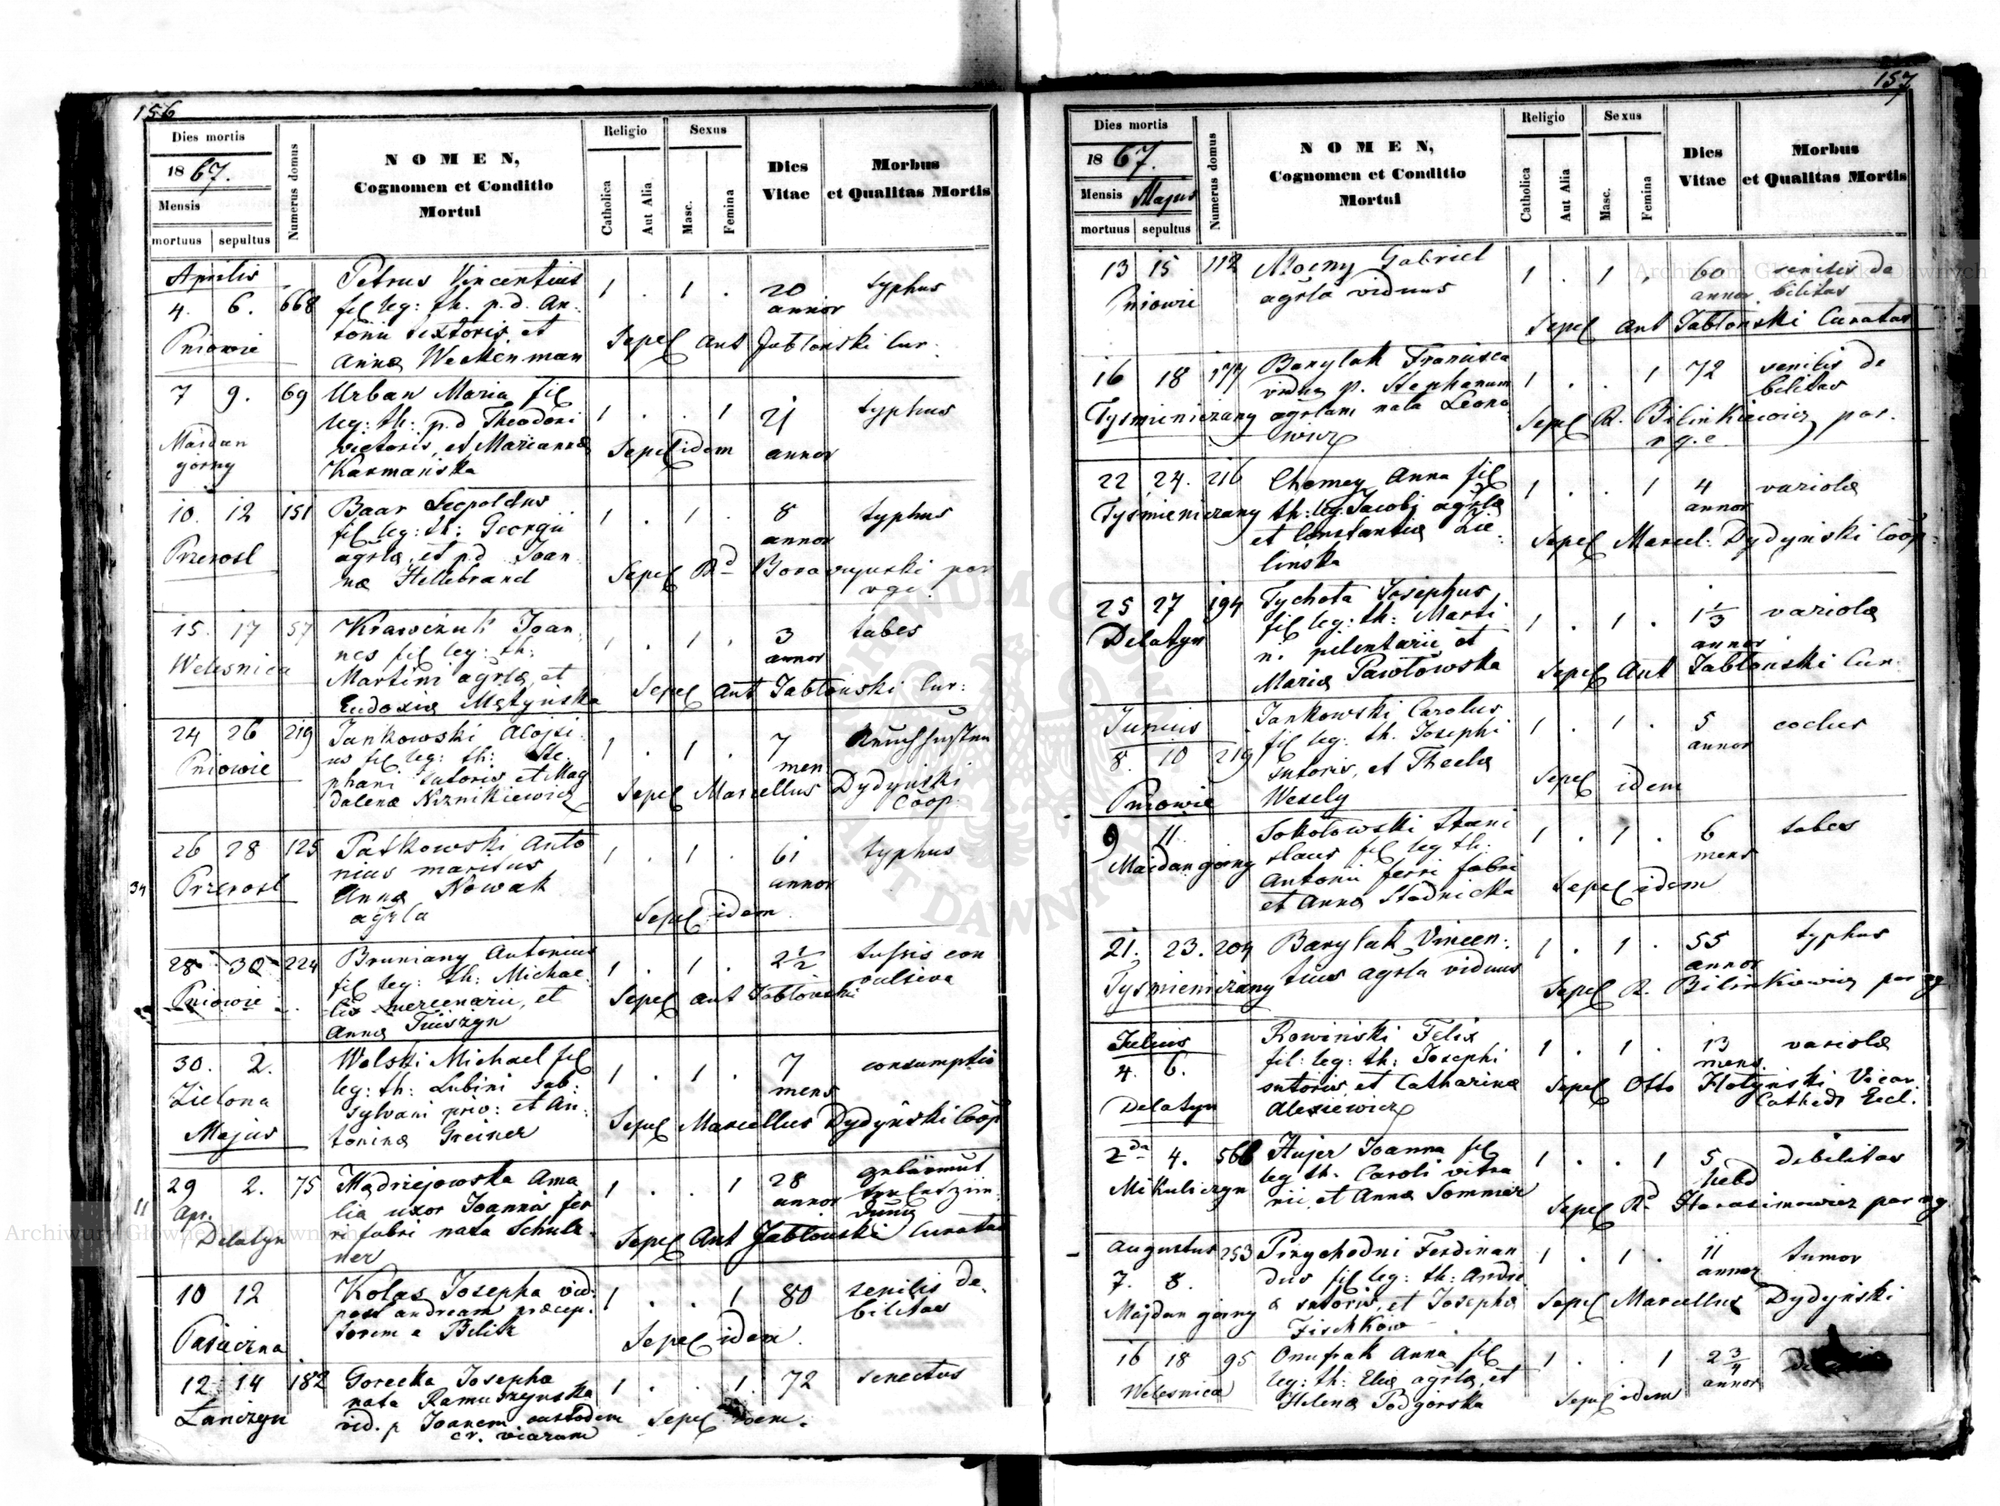 156
Dies mortis
1867.
Mensis
mortuus sepultus
Numerus domus
NOMEN,
Cognomen et Conditio
Mortui
Religio
Catholica
Aut Alia
Sexus
Masc.
Femina
Dies
Vitae
Morbus
et Qualitas Mortis
Aprilis
4. 6. 668
Pniowie
Petrus Vincentius
fil leg: th. p. d. An-
tonii textoris, et
Annæ Weckenman
1 . 1 .
20
annor
typhus
Sepel Ant Jabłonski Cur.
7 9. 69
Majdan
górny
Urban Maria fil
leg: th: p.d Theodori
vietoris, et Mariannæ
Karmańska
1 . . 1
21
annor
typhus
Sepel idem
10. 12 151
Przerosl
Baar Leopoldus
fil leg: th: Georgii
agrlæ, et p.d. Joan-
næ Hillebrand
1 . 1 .
8
annor
typhus
Sepel Rd
par
rgc.
15. 17 57
Welesnica
Krawczuk Joan-
nes fil leg: th:
Martini agrlæ, et
Eudoxiæ Matyńska
1 . 1 .
3
annor
tabes
Sepel Ant Jabłonski Cur:
24 26 219
Pniowie
Jankowski Aloisi
us fil leg: th: Ste
phani sutoris, et Mag
dalenæ Niznikiewicz
1 . 1 .
7
men
Keuchhusten
Sepel Marcellus Dydyński
Coop.
34
26 28 125
Przerosl
Patkowski Anto
nius maritus
Annæ Nowak
agrla
1 . 1 .
61
annor
typhus
Sepel idem
28 30 224
Pniowie
Bruniany Antonius
fil leg: th: Michae-
lis mercenarii, et
Annæ
1 . 1 .
2 1/2
tussis con
vulsiva
Sepel Ant Jabłonski
30. 2.
Zielona
Majus
Wolski Michael fil
leg: th: Lubini sal:
sylvani priv: et An-
toninæ Greiner
1 . 1 .
7
mens
consumptio
Sepel Marcellus Dydyński Coop
11
29 2. 75
Apr.
Delatyn
Mądrzejowska Ama
lia uxor Joannis fer
ri fabri nata Schul-
ner
1 . . 1
28
annor
Gebärmut
terentzün
dung
Sepel Ant Jabłonski Curatus
10 12
Pasieczna
Kolas Josepha vid:
post Andream præcep-
torem a Bilik
1 . . 1
80
senilis de-
bilitas
Sepel idem.
12 14 182
Lanczyn
Gorecka Josepha
nata Ramuszynska
vid. p Joanem custodem
cr. viarum
1 . . 1.
72
senectus
Sepel idem.
157
Dies mortis
1867.
Mensis Majus
mortuus sepultus
Numerus domus
NOMEN,
Cognomen et Conditio
Mortui
Religio
Catholica
Aut Alia
Sexus
Masc.
Femina
Dies
Vitae
Morbus
et Qualitas Mortis
13 15 112
Pniowie
Mocny Gabriel
agrla viduus
1 . 1 .
60
annor
senilis de
bilitas
Sepel Ant Jabłonski Curatus
16 18 177
Tysmieniczany
Barylak Francisca
vidua p. Stephanum
agrlam nata Leono
wicz
1 . . 1
72
senilis de
bilitas
Sepel R. Bilinkiewicz par.
r g. c.
22 24. 216
Tysmieniczany
Chomey Anna fil
th: leg: Jacobi agrlæ
et Constantiæ Zie-
linska
1 . . 1
4
annor
variolæ
Sepel Marcel. Dydyński Coop.
25 27 194
Delatyn
Tychota Josephus
fil leg: th: Marti
ni pilentarii, et
Mariæ Pawłowska
1 . 1 .
1 1/3
annor
variolæ
Sepel Ant Jabłonski Cur.
Junius
8. 10 219
Pniowie
Jankowski Carolus
fil leg: th. Josephi
sutoris, et Theclæ
Wesely
1 . 1 .
5
annor
Sepel idem
9 11.
Majdan górny
Sokołowski Stani
slaus fil leg th:
Antonii ferri fabri
et Annæ Stadnicka
1 . 1 .
6
mens
tabes
Sepel idem
21. 23. 204
Tysmieniczany
Barylak Vincen-
tius agrla viduus
1 . 1 .
55
annor
typhus
Sepel R. Bilinkiewicz par rg
Julius
4. 6.
Delatyn
Rowiński Felix
fil: leg: th: Josephi
sutoris, et Catharinæ
Alexiewicz
1 . 1 .
13
mens.
variolæ
Sepel Otto Hołyński Vicar.
Cathedr Eccl.
2da 4. 566
Mikuliczyn
Hujer Joanna fil
leg th. Caroli vitra
rii, et Annæ Sommer
1 . . 1
5
hebd
debilitas
Sepel Rd Harasimowicz par rg.
Augustus 253
7. 8.
Majdan górny
Przychodni Ferdinan
dus fil leg: th: Andre
æ sutoris, et Josephæ
Fischkow
1 . 1 .
11
annor
tumor
Sepel Marcellus Dydyński
16 18 95
Welesnica
Onufrak Anna fil
leg: th: Eliæ agrlæ, et
Helenæ Podgorska
1 . . 1
2 3/4
annor
Sepel idem
Archiwum Główne Akt Dawnych
Archiwum Główne Akt Dawnych
ARCHIWUM GŁÓWNE AKT DAWNYCH